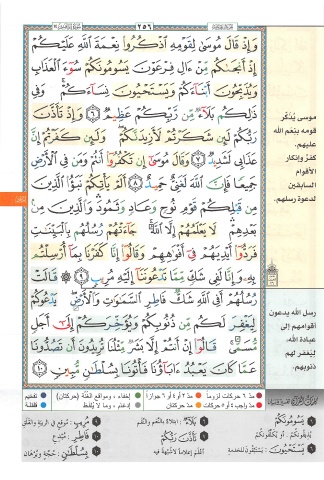 ٢٥٦
وَإِذْ قَالَ مُوسَىٰ لِقَوْمِهِ ٱذْكُرُوا۟ نِعْمَةَ ٱللَّهِ عَلَيْكُمْ
إِذْ أَنجَىٰكُم مِّنْ ءَالِ فِرْعَوْنَ يَسُومُونَكُمْ سُوٓءَ ٱلْعَذَابِ
وَيُذَبِّحُونَ أَبْنَآءَكُمْ وَيَسْتَحْيُونَ نِسَآءَكُمْ ۚ وَفِى
ذَٰلِكُم بَلَآءٌ مِّن رَّبِّكُمْ عَظِيمٌ ٦ وَإِذْ تَأَذَّنَ
رَبُّكُمْ لَئِن شَكَرْتُمْ لَأَزِيدَنَّكُمْ ۖ وَلَئِن كَفَرْتُمْ إِنَّ
عَذَابِى لَشَدِيدٌ ٧ وَقَالَ مُوسَىٰٓ إِن تَكْفُرُوٓا۟ أَنتُمْ وَمَن فِى ٱلْأَرْضِ
جَمِيعًا فَإِنَّ ٱللَّهَ لَغَنِىٌّ حَمِيدٌ ٨ أَلَمْ يَأْتِكُمْ نَبَؤُا۟ ٱلَّذِينَ
مِن قَبْلِكُمْ قَوْمِ نُوحٍ وَعَادٍ وَثَمُودَ ۛ وَٱلَّذِينَ مِنۢ
بَعْدِهِمْ ۛ لَا يَعْلَمُهُمْ إِلَّا ٱللَّهُ ۚ جَآءَتْهُمْ رُسُلُهُم بِٱلْبَيِّنَٰتِ
فَرَدُّوٓا۟ أَيْدِيَهُمْ فِىٓ أَفْوَٰهِهِمْ وَقَالُوٓا۟ إِنَّا كَفَرْنَا بِمَآ أُرْسِلْتُم
بِهِۦ وَإِنَّا لَفِى شَكٍّ مِّمَّا تَدْعُونَنَآ إِلَيْهِ مُرِيبٍ ٩ ۞ قَالَتْ
رُسُلُهُمْ أَفِى ٱللَّهِ شَكٌّ فَاطِرِ ٱلسَّمَٰوَٰتِ وَٱلْأَرْضِ ۖ يَدْعُوكُمْ
لِيَغْفِرَ لَكُم مِّن ذُنُوبِكُمْ وَيُؤَخِّرَكُمْ إِلَىٰٓ أَجَلٍ
مُّسَمًّى ۚ قَالُوٓا۟ إِنْ أَنتُمْ إِلَّا بَشَرٌ مِّثْلُنَا تُرِيدُونَ أَن تَصُدُّونَا
عَمَّا كَانَ يَعْبُدُ ءَابَآؤُنَا فَأْتُونَا بِسُلْطَٰنٍ مُّبِينٍ ١٠
موسى يُذكّر
قومه بنعم الله
عليهم.
كفرُ وإنكار
الأقوام
السابقين
لدعوة رسلهم.
رسل الله يدعون
أقوامهم إلى
عبادة الله،
ليغفر لهم
ذنوبهم.
مدّ ٦ حركات لزوماً
مدّ ٢ أو ٤ أو ٦ جوازاً
إخفاء، ومواقع الغُنَّة (حركتان)
تفخيم
مدّ واجب ٤ أو ٥ حركات
مدّ حركتان
إدغام، وما لا يُلفَظ
قلقلة
يَسُومُونَكُمْ
يَسْتَحْيُونَ
بَلَآءٌ
تَأَذَّنَ رَبُّكُمْ
مُرِيبٍ
فَاطِرِ
بِسُلْطَٰنٍ